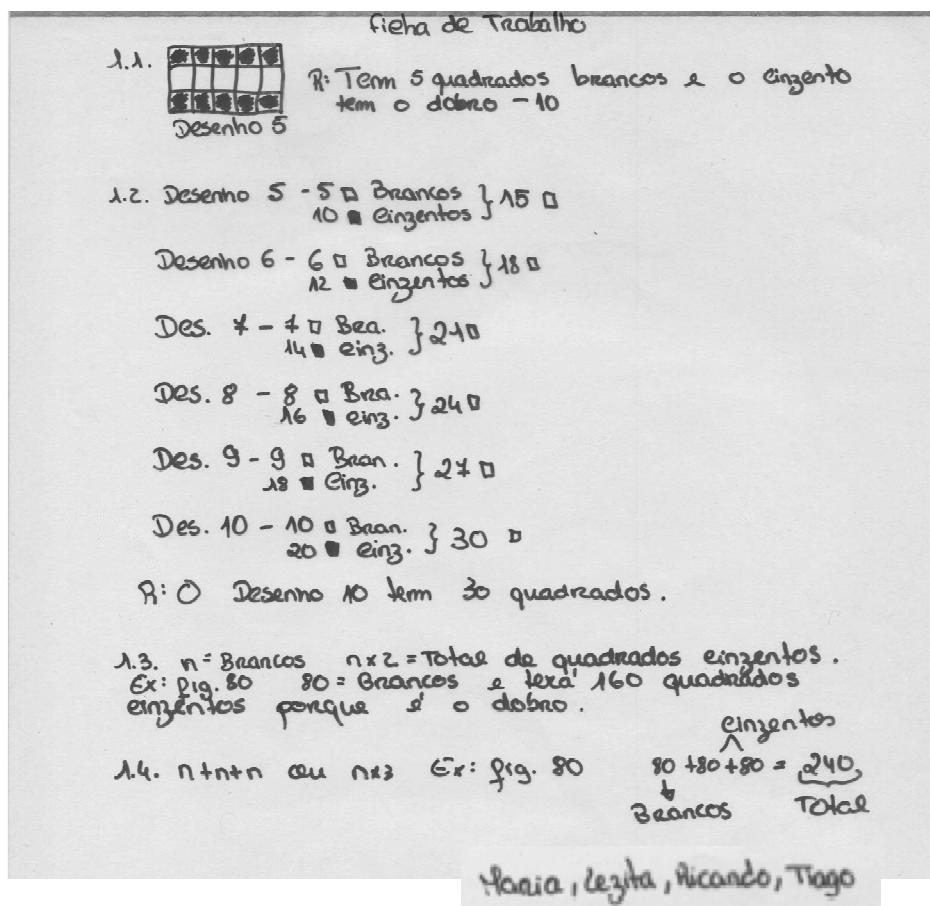 Ficha de Trabalho
1.1.
R: Tem 5 quadrados brancos e o cinzento
tem o dobro - 10
Desenho 5
1.2. Desenho 5 - 5 □ Brancos } 15 □
10 ■ cinzentos
Desenho 6 - 6 □ Brancos } 18 □
12 ■ cinzentos
Des. 7 - 7 □ Bra. } 21 □
14 ■ cinz.
Des. 8 - 8 □ Bra. } 24 □
16 ■ cinz.
Des. 9 - 9 □ Bran. } 27 □
18 ■ Cinz.
Des. 10 - 10 □ Bran. } 30 □
20 ■ cinz.
R: O Desenho 10 tem 30 quadrados.
1.3. n = Brancos n x 2 = Total de quadrados cinzentos.
Ex: fig. 80 80 = Brancos e terá 160 quadrados
cinzentos porque é o dobro.
cinzentos
1.4. n+n+n ou nx3 Ex: fig. 80 80 +80 +80 = 240
Brancos Total
Maria, Lezita, Ricardo, Tiago